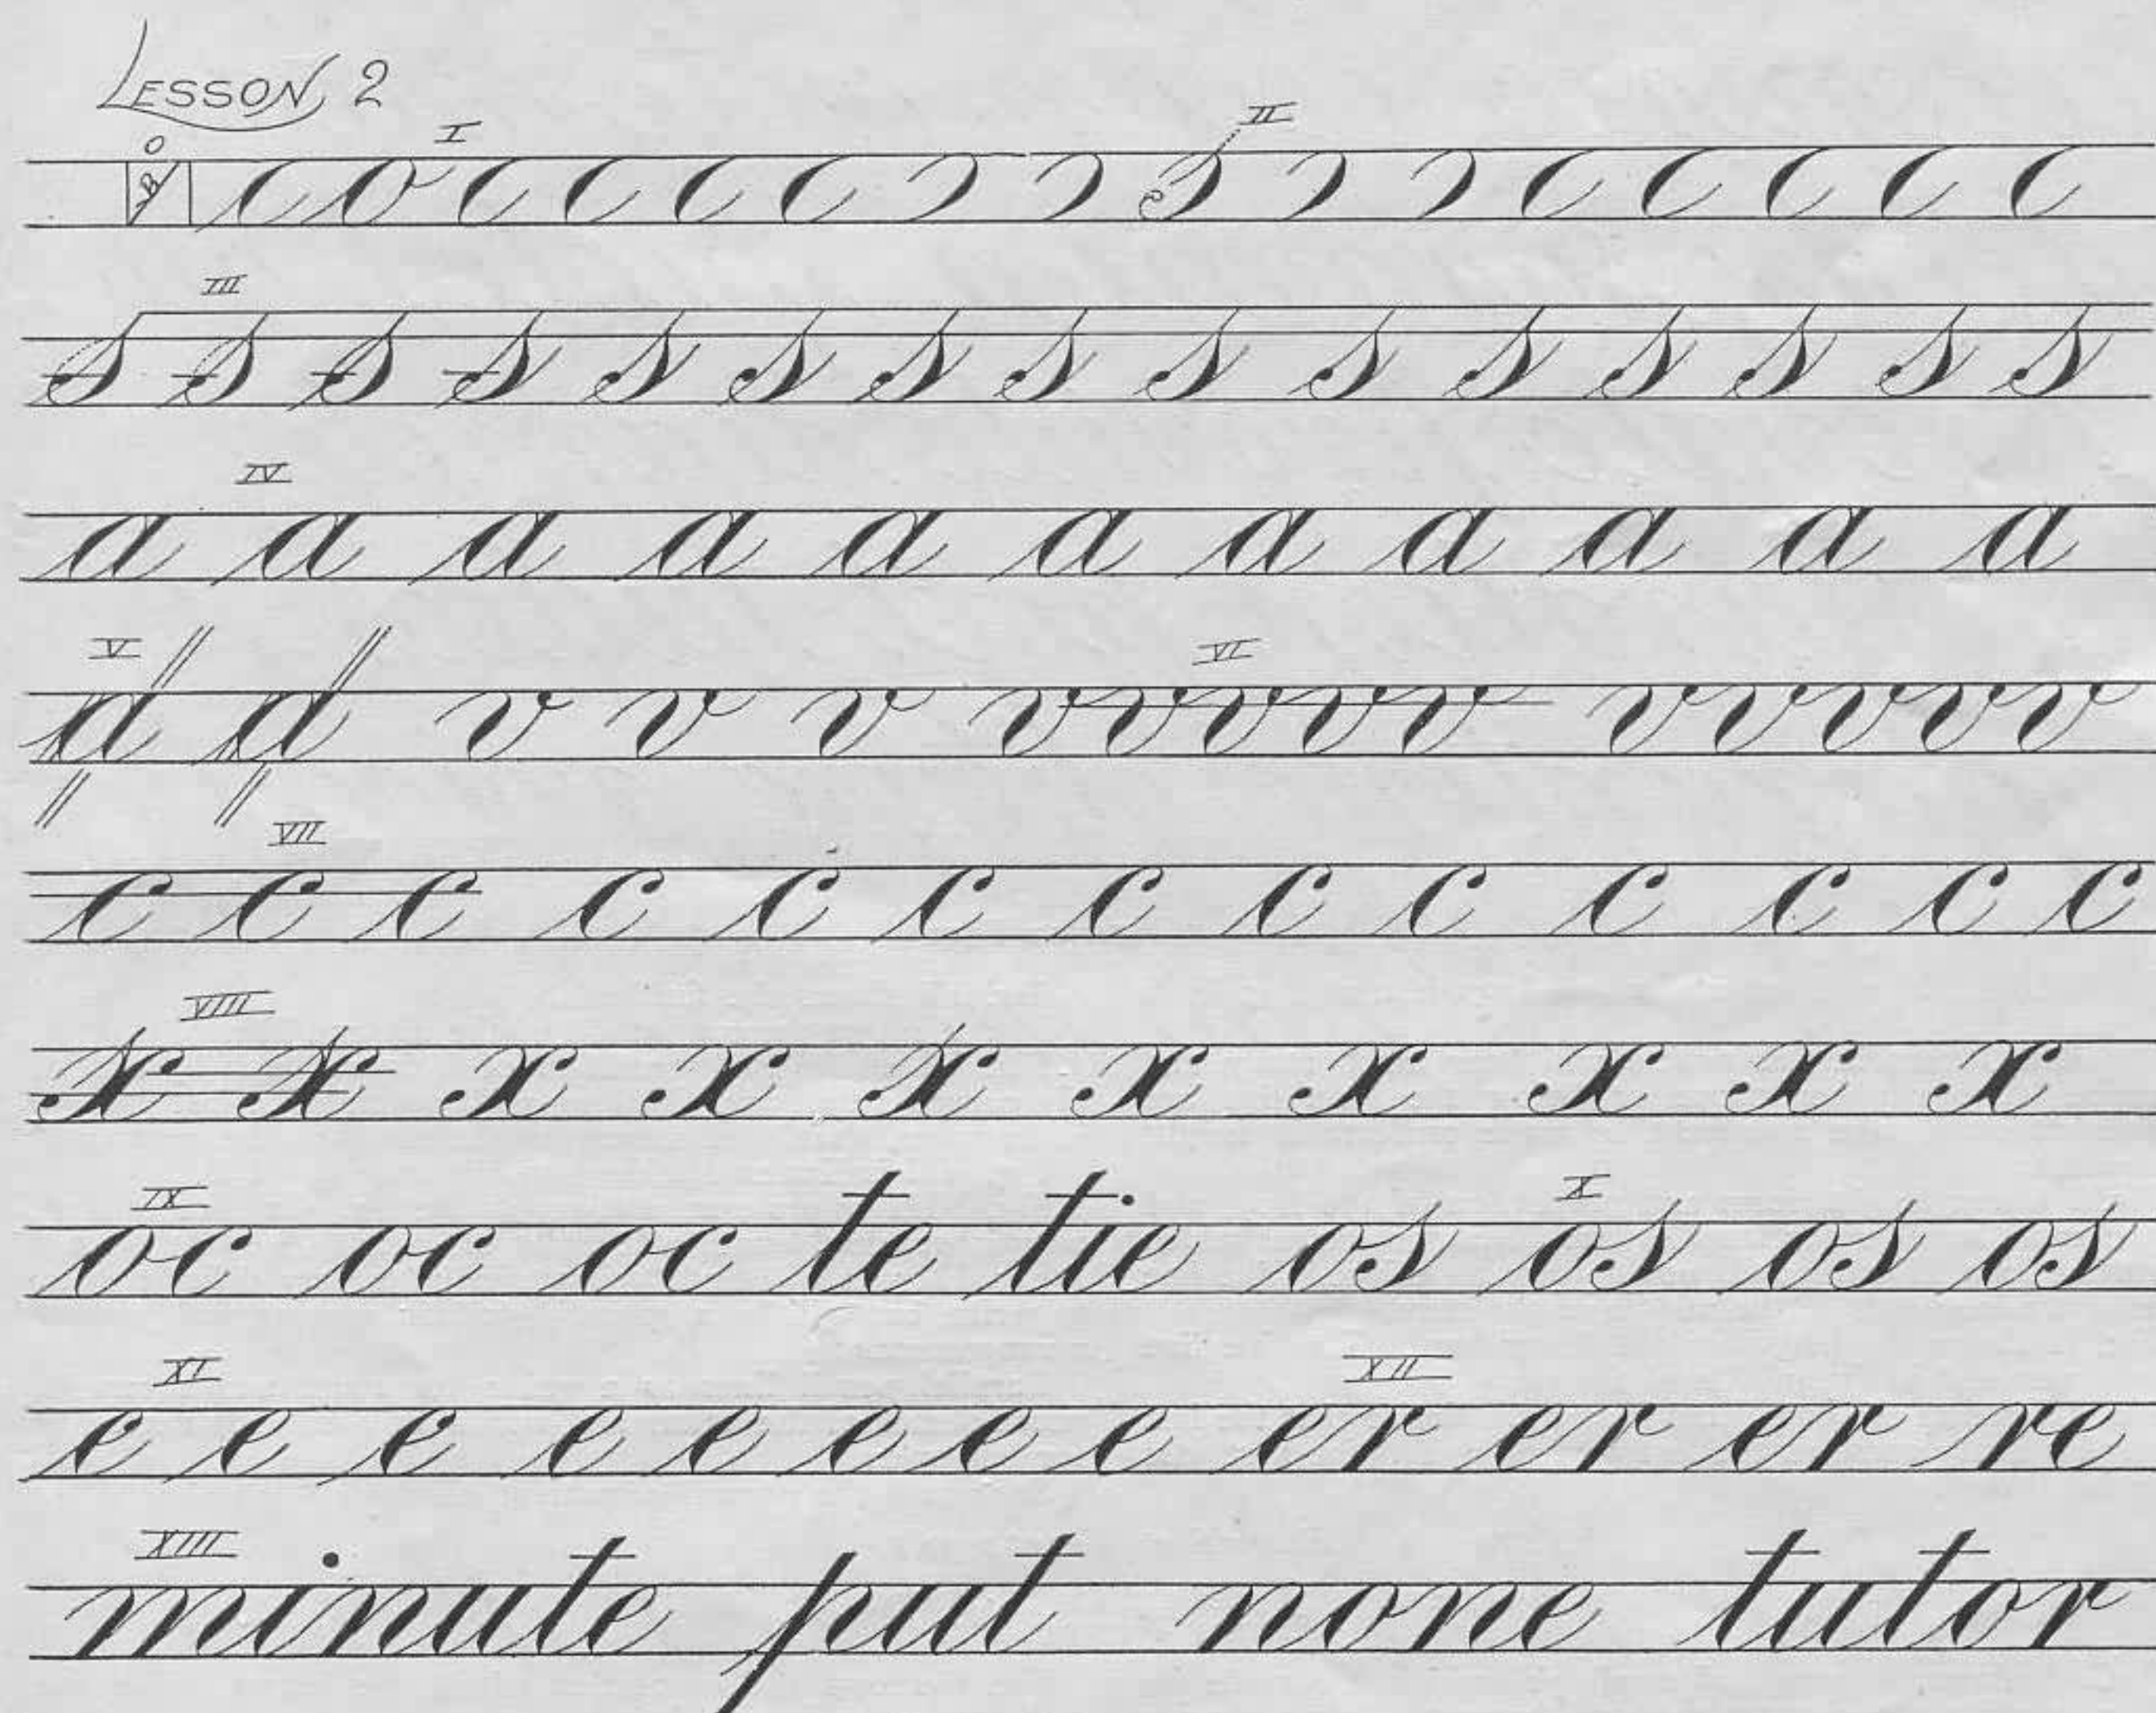 LESSON 2
O I II
c o c c c c ɔ ɔ ɔ ɔ ɔ c c c c c
III
s s s s s s s s s s s s s s s
IV
a a a a a a a a a a a
V VI
a a v v v vvvvv vvvvv
VII
c c c c c c c c c c c c c
VIII
x x x x x x x x x x
IX X
oc oc oc te tie os os os os
XI XII
e e e e e e e e er er er re
XIII
minute put none tutor